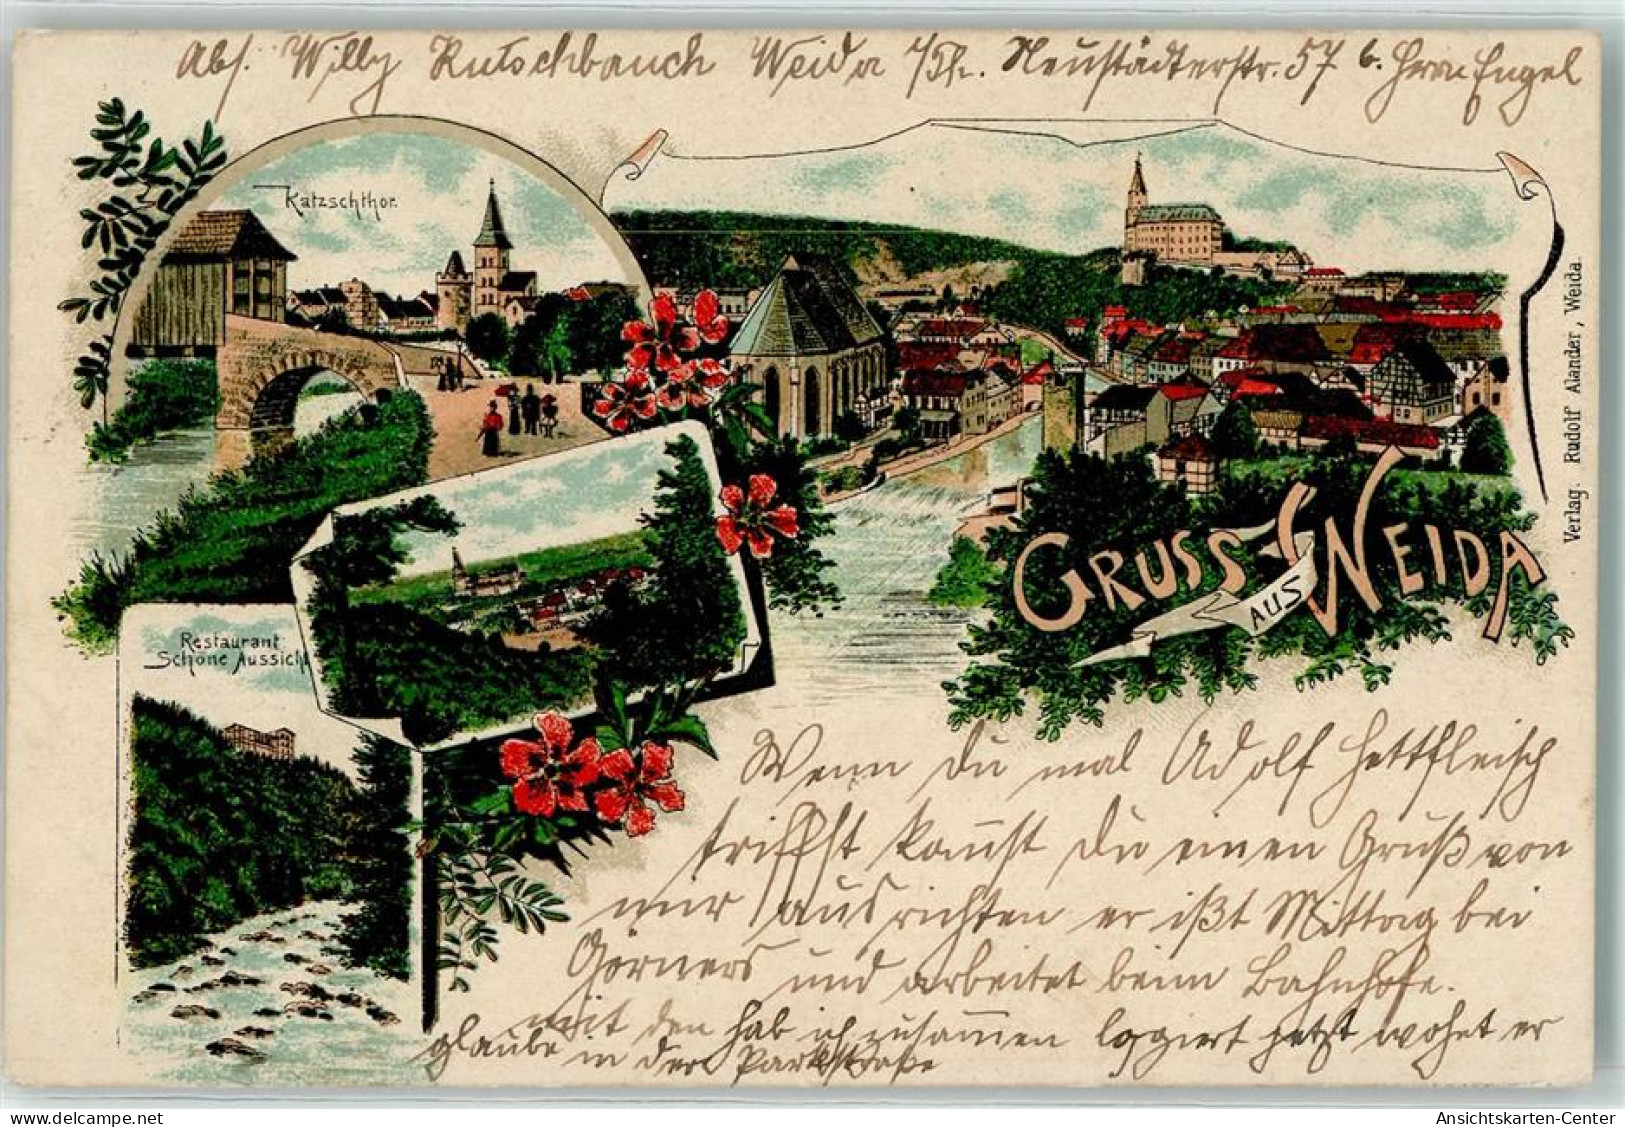 Abs. Willy Rutschbauch Weida i/Th. Neustädterstr. 57 b. Herrn Engel
Katzschthor.
Verlag. Rudolf Alander, Weida.
GRUSS AUS WEIDA
Restaurant
Schöne Aussicht
Wenn du mal Adolf Hettfleisch
triffst kannst du einen Gruß von
mir ausrichten er ißt Mittag bei
Görners und arbeitet beim Bahnhofe.
mit den hab ich zusammen logiert jetzt wohnt er
glaube in der Parkstraße
delcampe.net
Ansichtskarten-Center